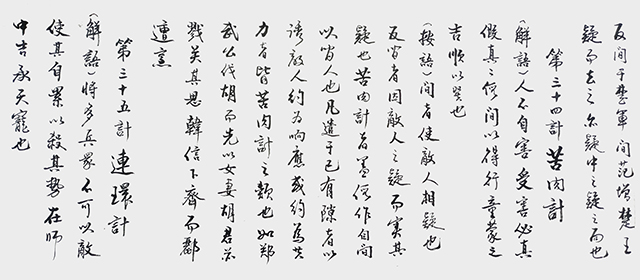 反间于楚军间范增楚王
疑而去之亦疑中之疑之而也
第三十四计苦肉计
（解语）人不自害受害必真
假真真假间以得行童蒙之
吉顺以巽也
（按语）间者使敌人相疑也
反间者因敌人之疑而实其
疑也苦肉计者盖假作自间
以间人也凡遣于己有隙者以
诱敌人约为响应或约为共
力者皆苦肉计之类也如郑
武公伐胡而先以女妻胡君并
戮关其思韩信下齐而郦
遭烹
第三十五计连环计
（解语）将多兵众不可以敌
使其自累以杀其势在师
中吉承天宠也